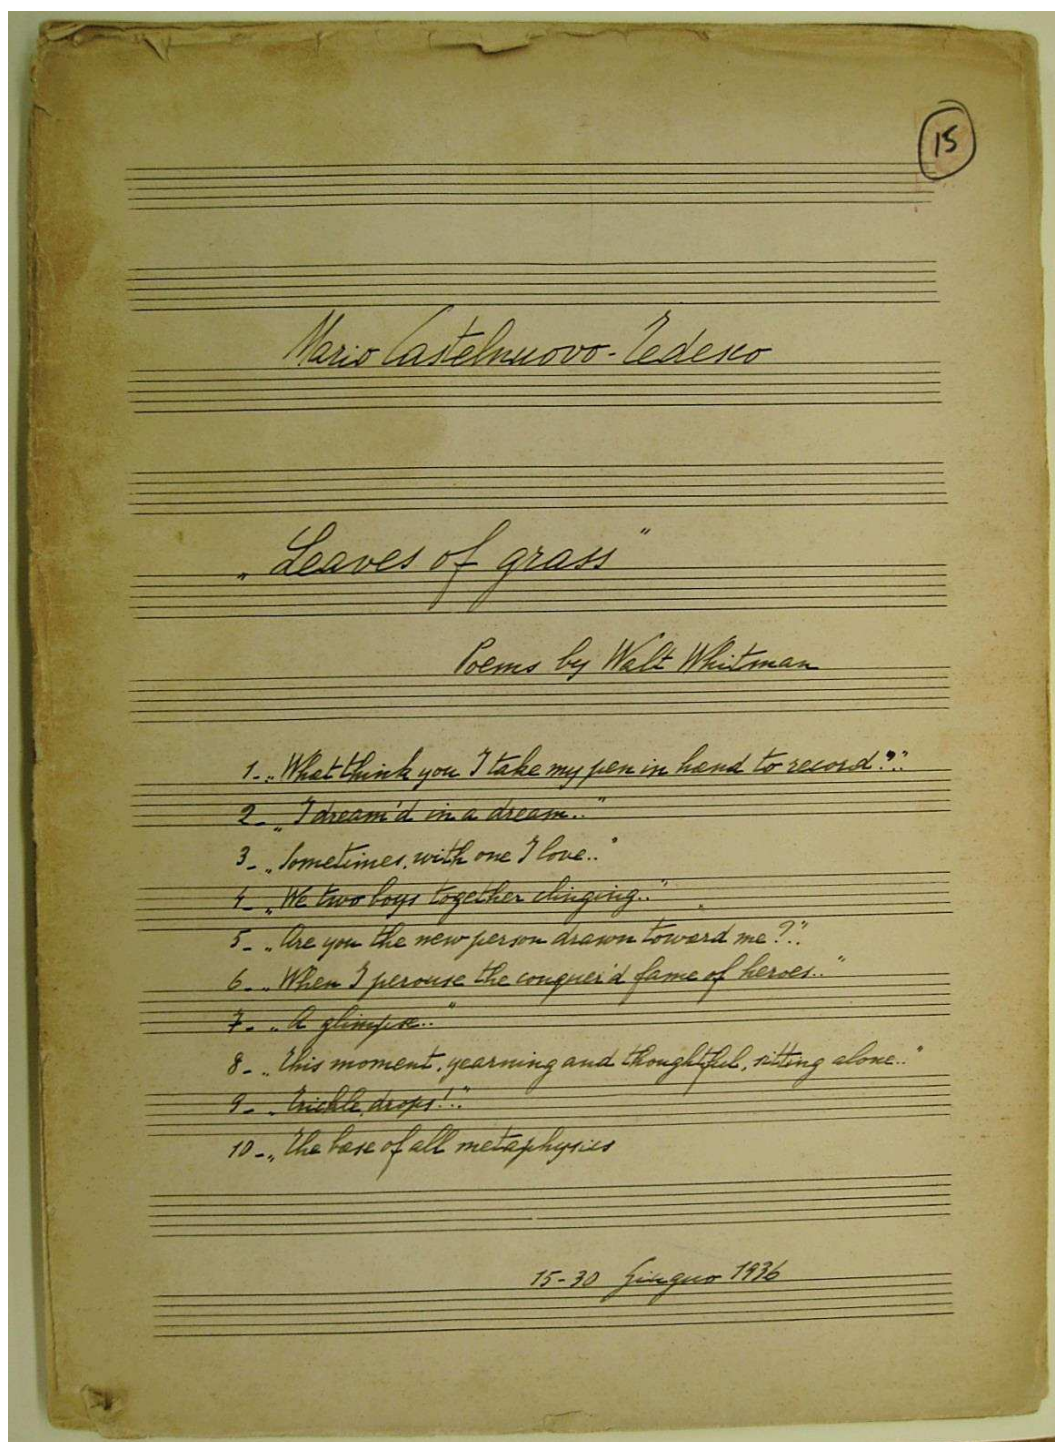 15
Mario Castelnuovo-Tedesco
„Leaves of grass"
Poems by Walt Whitman
1_ „What think you I take my pen in hand to record?.."
2_ „I dream'd in a dream.."
3_ „Sometimes, with one I love.."
4_ „We two boys together clinging.."
5_ „Are you the new person drawn toward me?.."
6_ „When I perouse the conquer'd fame of heroes.."
7_ „A glimpse.."
8_ „This moment, yearning and thoughtful, sitting alone.."
9_ „Trickle, drops!.."
10_ „The base of all metaphysics
15-30 Giugno 1936